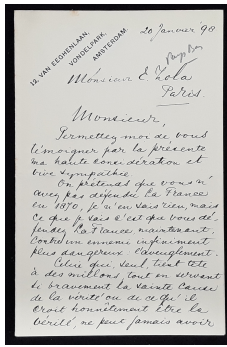 12. VAN EEGHENLAAN,
VONDELPARK,
AMSTERDAM.
20 Janvier '98
Monsieur E. Zola
Paris.
Monsieur,
Permettez moi de vous
témoigner par la présente
ma haute considération et
vive sympathie.
On prétend que vous n'
avez pas défendu La France
en 1870, je n'en sais rien, mais
ce que je sais c'est que vous dé-
fendez La France maintenant,
contre un ennemi infiniment
plus dangereux: l'aveuglement.
Celui qui, seul, tient tête
à des millions, tout en servant
si bravement la sainte Cause
de la verité ou de ce qu'il
croit honnêtement être la
vérité, ne peut jamais avoir